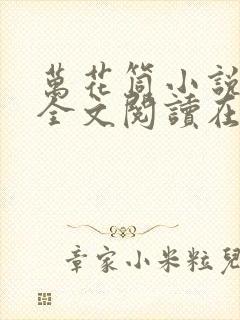 萬花筒小說
全文閱讀在
章家小米粒兒